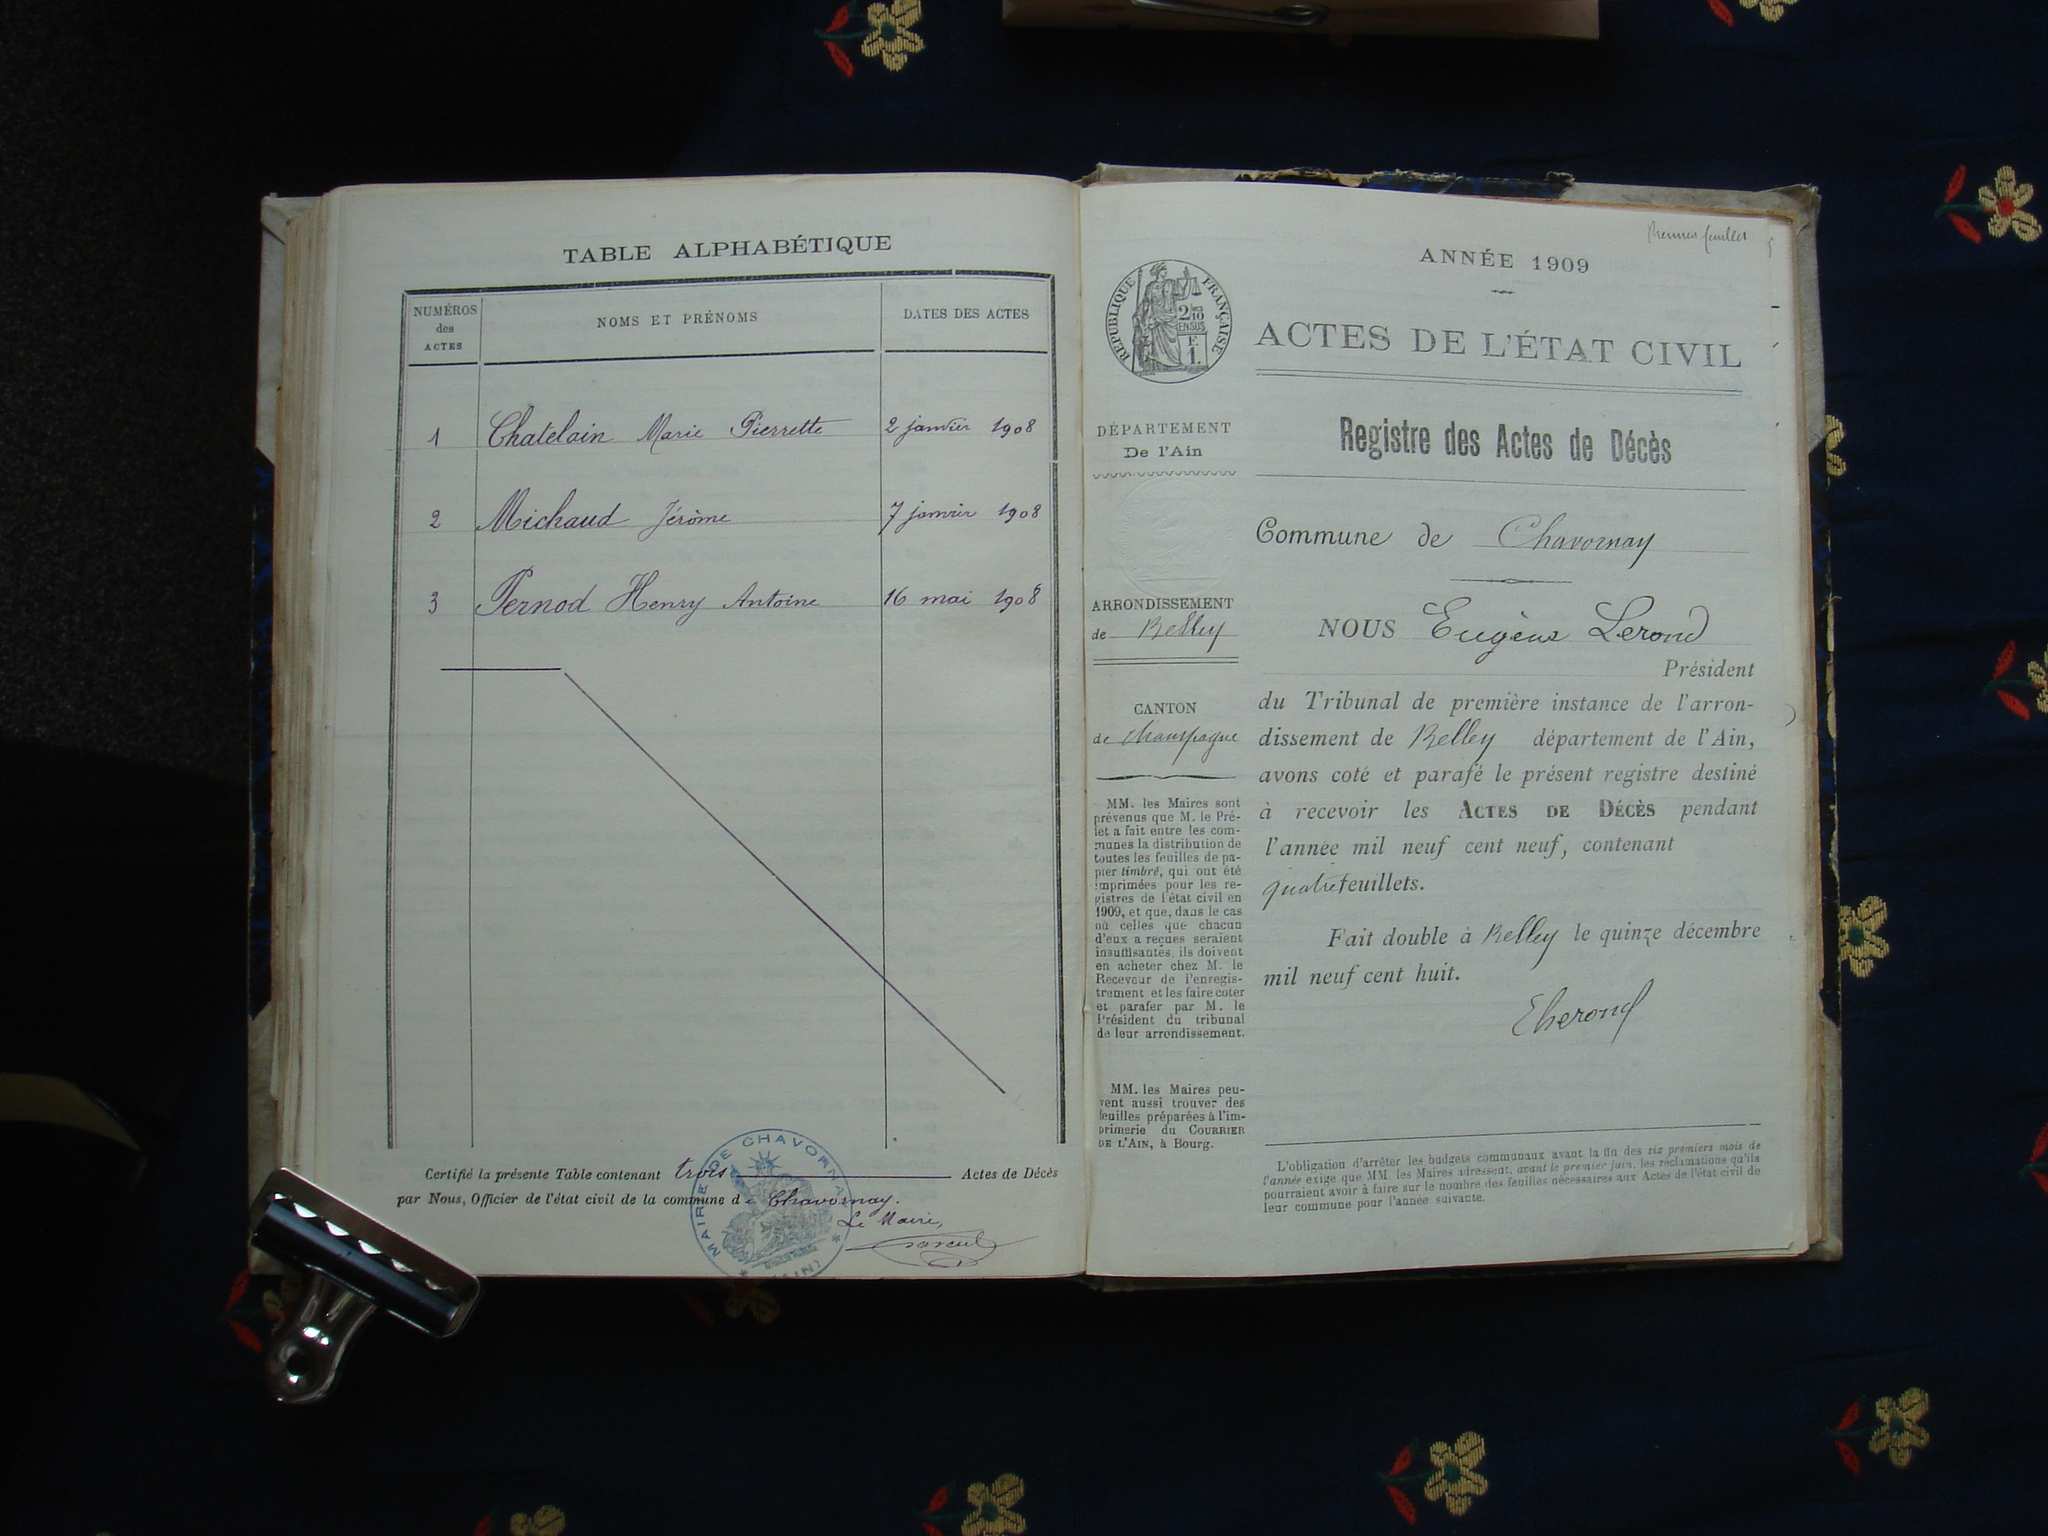 TABLE ALPHABÉTIQUE
NUMÉROS
des
ACTES
NOMS ET PRÉNOMS
DATES DES ACTES
1 Chatelain Marie Pierrette 2 janvier 1908
2 Michaud Jérôme 7 janvier 1908
3 Pernod Henry Antoine 16 mai 1908
Certifié la présente Table contenant trois Actes de Décès
par Nous, Officier de l'état civil de la commune de Chavornay.
Le Maire,
MAIRIE DE CHAVORNAY
(AIN)
Premier feuillet
ANNÉE 1909
RÉPUBLIQUE FRANÇAISE
2/10
EN SUS
F.
1.
ACTES DE L'ÉTAT CIVIL
DÉPARTEMENT
De l'Ain
Registre des Actes de Décès
Commune de Chavornay
ARRONDISSEMENT
de Belley
CANTON
de Champagne
MM. les Maires sont
prévenus que M. le Pré-
fet a fait entre les com-
munes la distribution de
toutes les feuilles de pa-
pier timbré, qui ont été
imprimées pour les re-
gistres de l'état civil en
1909, et que, dans le cas
où celles que chacun
d'eux a reçues seraient
insuffisantes, ils doivent
en acheter chez M. le
Receveur de l'enregis-
trement et les faire coter
et parafer par M. le
Président du tribunal
de leur arrondissement.
MM. les Maires peu-
vent aussi trouver des
feuilles préparées à l'im-
primerie du COURRIER
DE L'AIN, à Bourg.
NOUS Eugène Lerond
Président
du Tribunal de première instance de l'arron-
dissement de Belley département de l'Ain,
avons coté et parafé le présent registre destiné
à recevoir les ACTES DE DÉCÈS pendant
l'année mil neuf cent neuf, contenant
quatre feuillets.
Fait double à Belley le quinze décembre
mil neuf cent huit.
ELerond
L'obligation d'arrêter les budgets communaux avant la fin des six premiers mois de
l'année exige que MM. les Maires adressent, avant le premier juin, les réclamations qu'ils
pourraient avoir à faire sur le nombre des feuilles nécessaires aux Actes de l'état civil de
leur commune pour l'année suivante.